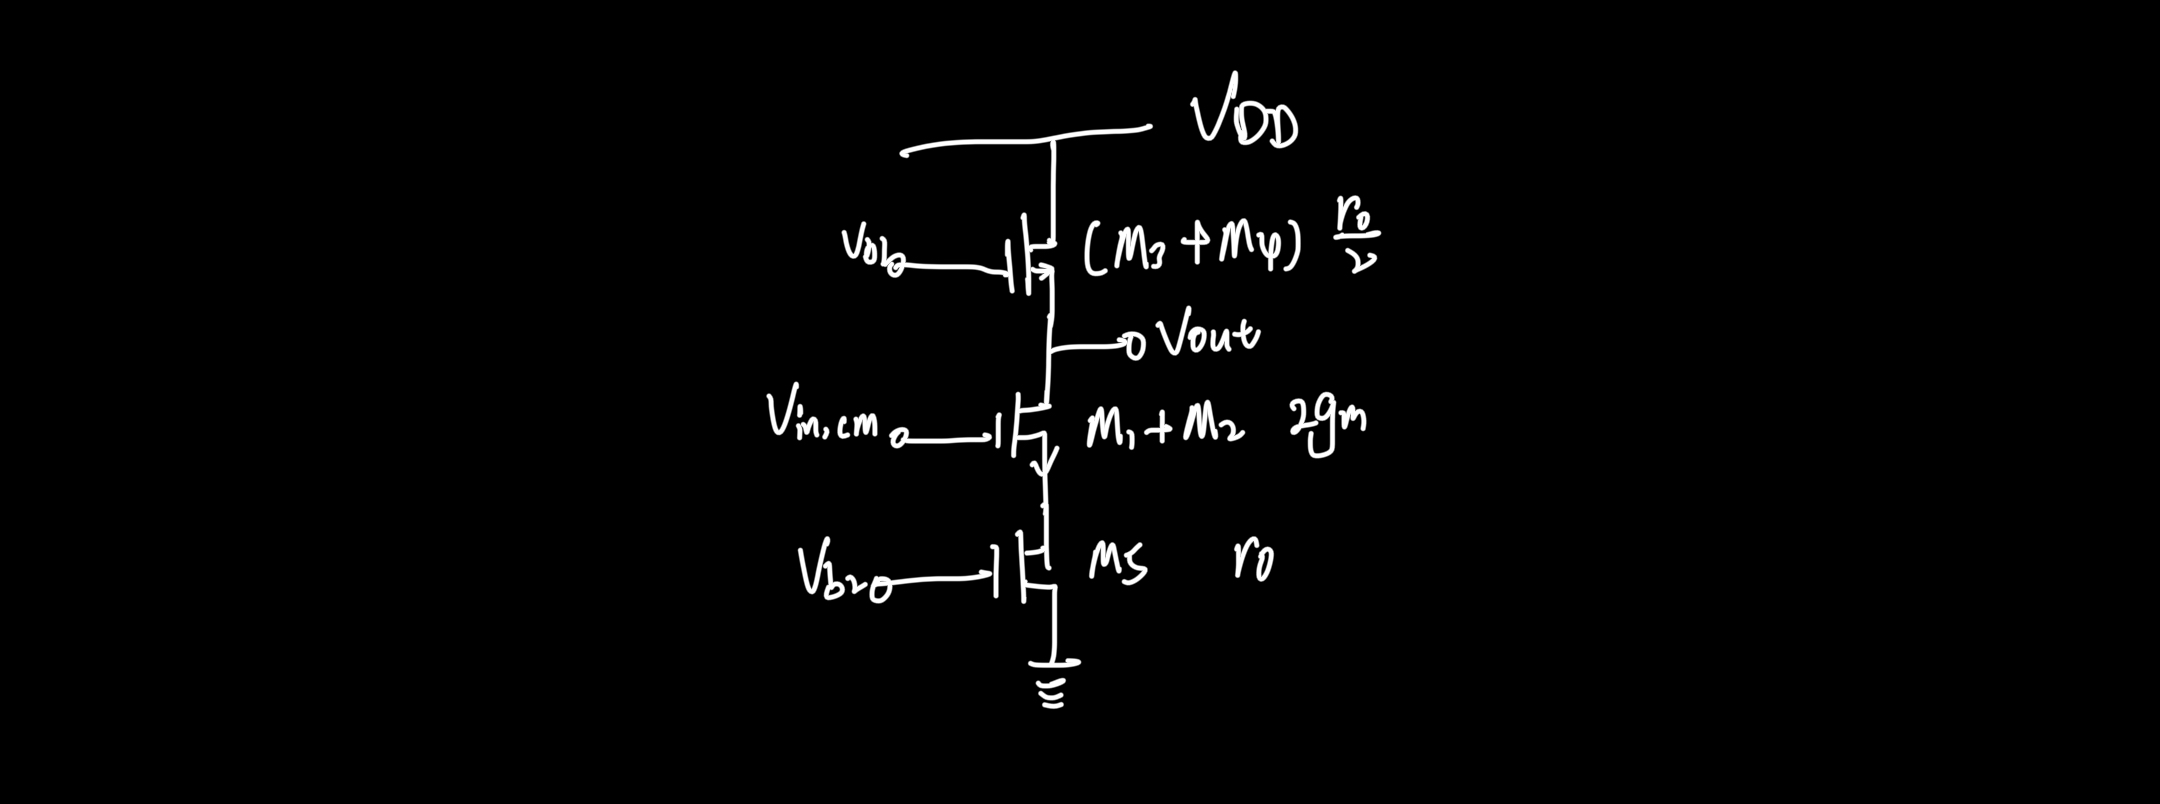 VDD
Vb1 (M3 + M4) r0/2
Vout
Vin,cm M1 + M2 2gm
Vb2 M5 r0